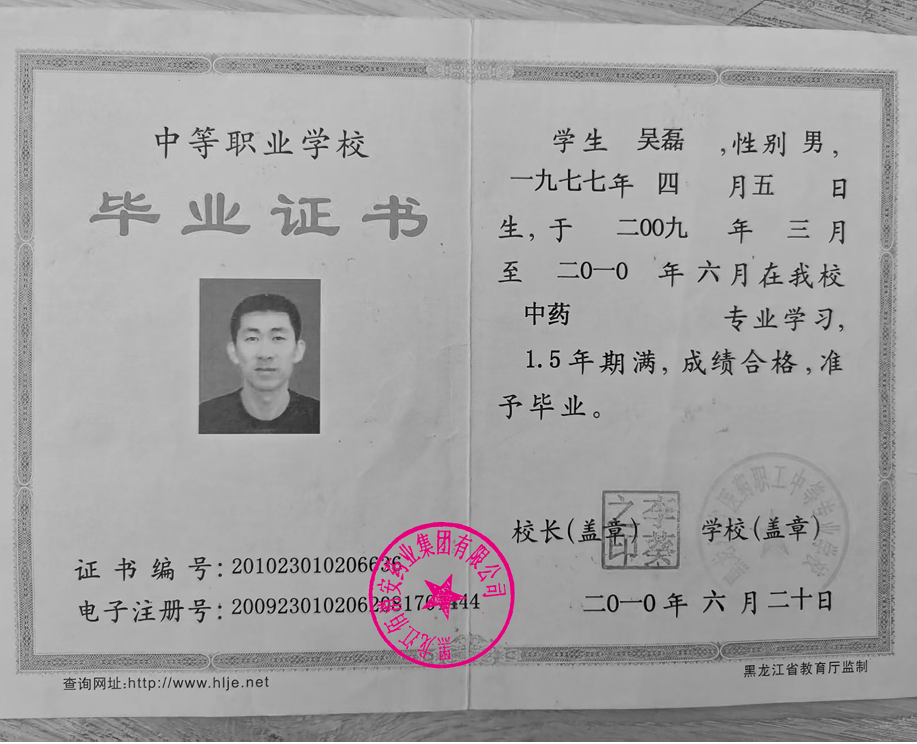 中等职业学校
毕业证书
证书编号:201023010206636
电子注册号:
查询网址:http://www.hlje.net
黑龙江佰泰安药业集团有限公司
学生 吴磊 ,性别 男,
一九七七年 四 月五 日
生,于 二00九 年 三 月
至 二0一0 年 六 月在我校
中药 专业学习,
1.5年期满,成绩合格,准
予毕业。
校长(盖章) 学校(盖章)
李 之印
职工中等专业学校
二0一0年 六 月二十日
黑龙江省教育厅监制